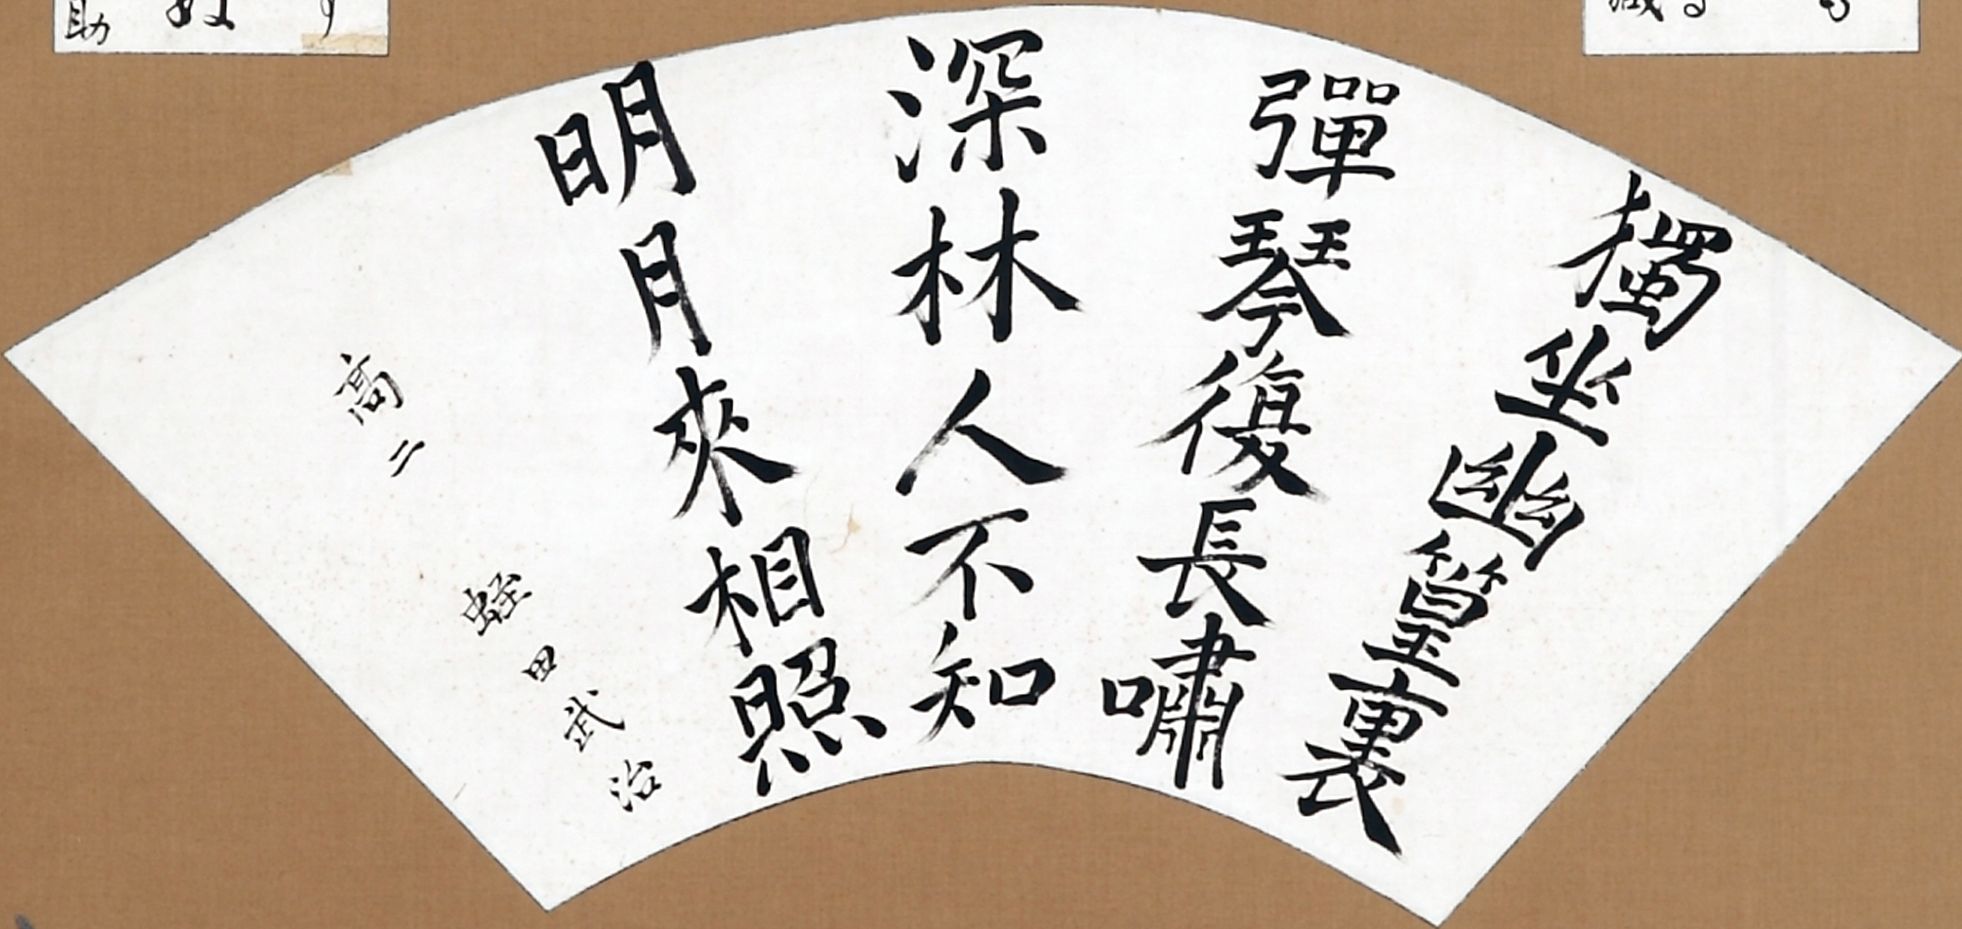 獨坐幽篁裏
彈琴復長嘯
深林人不知
明月來相照
高二
蛭田武治
助